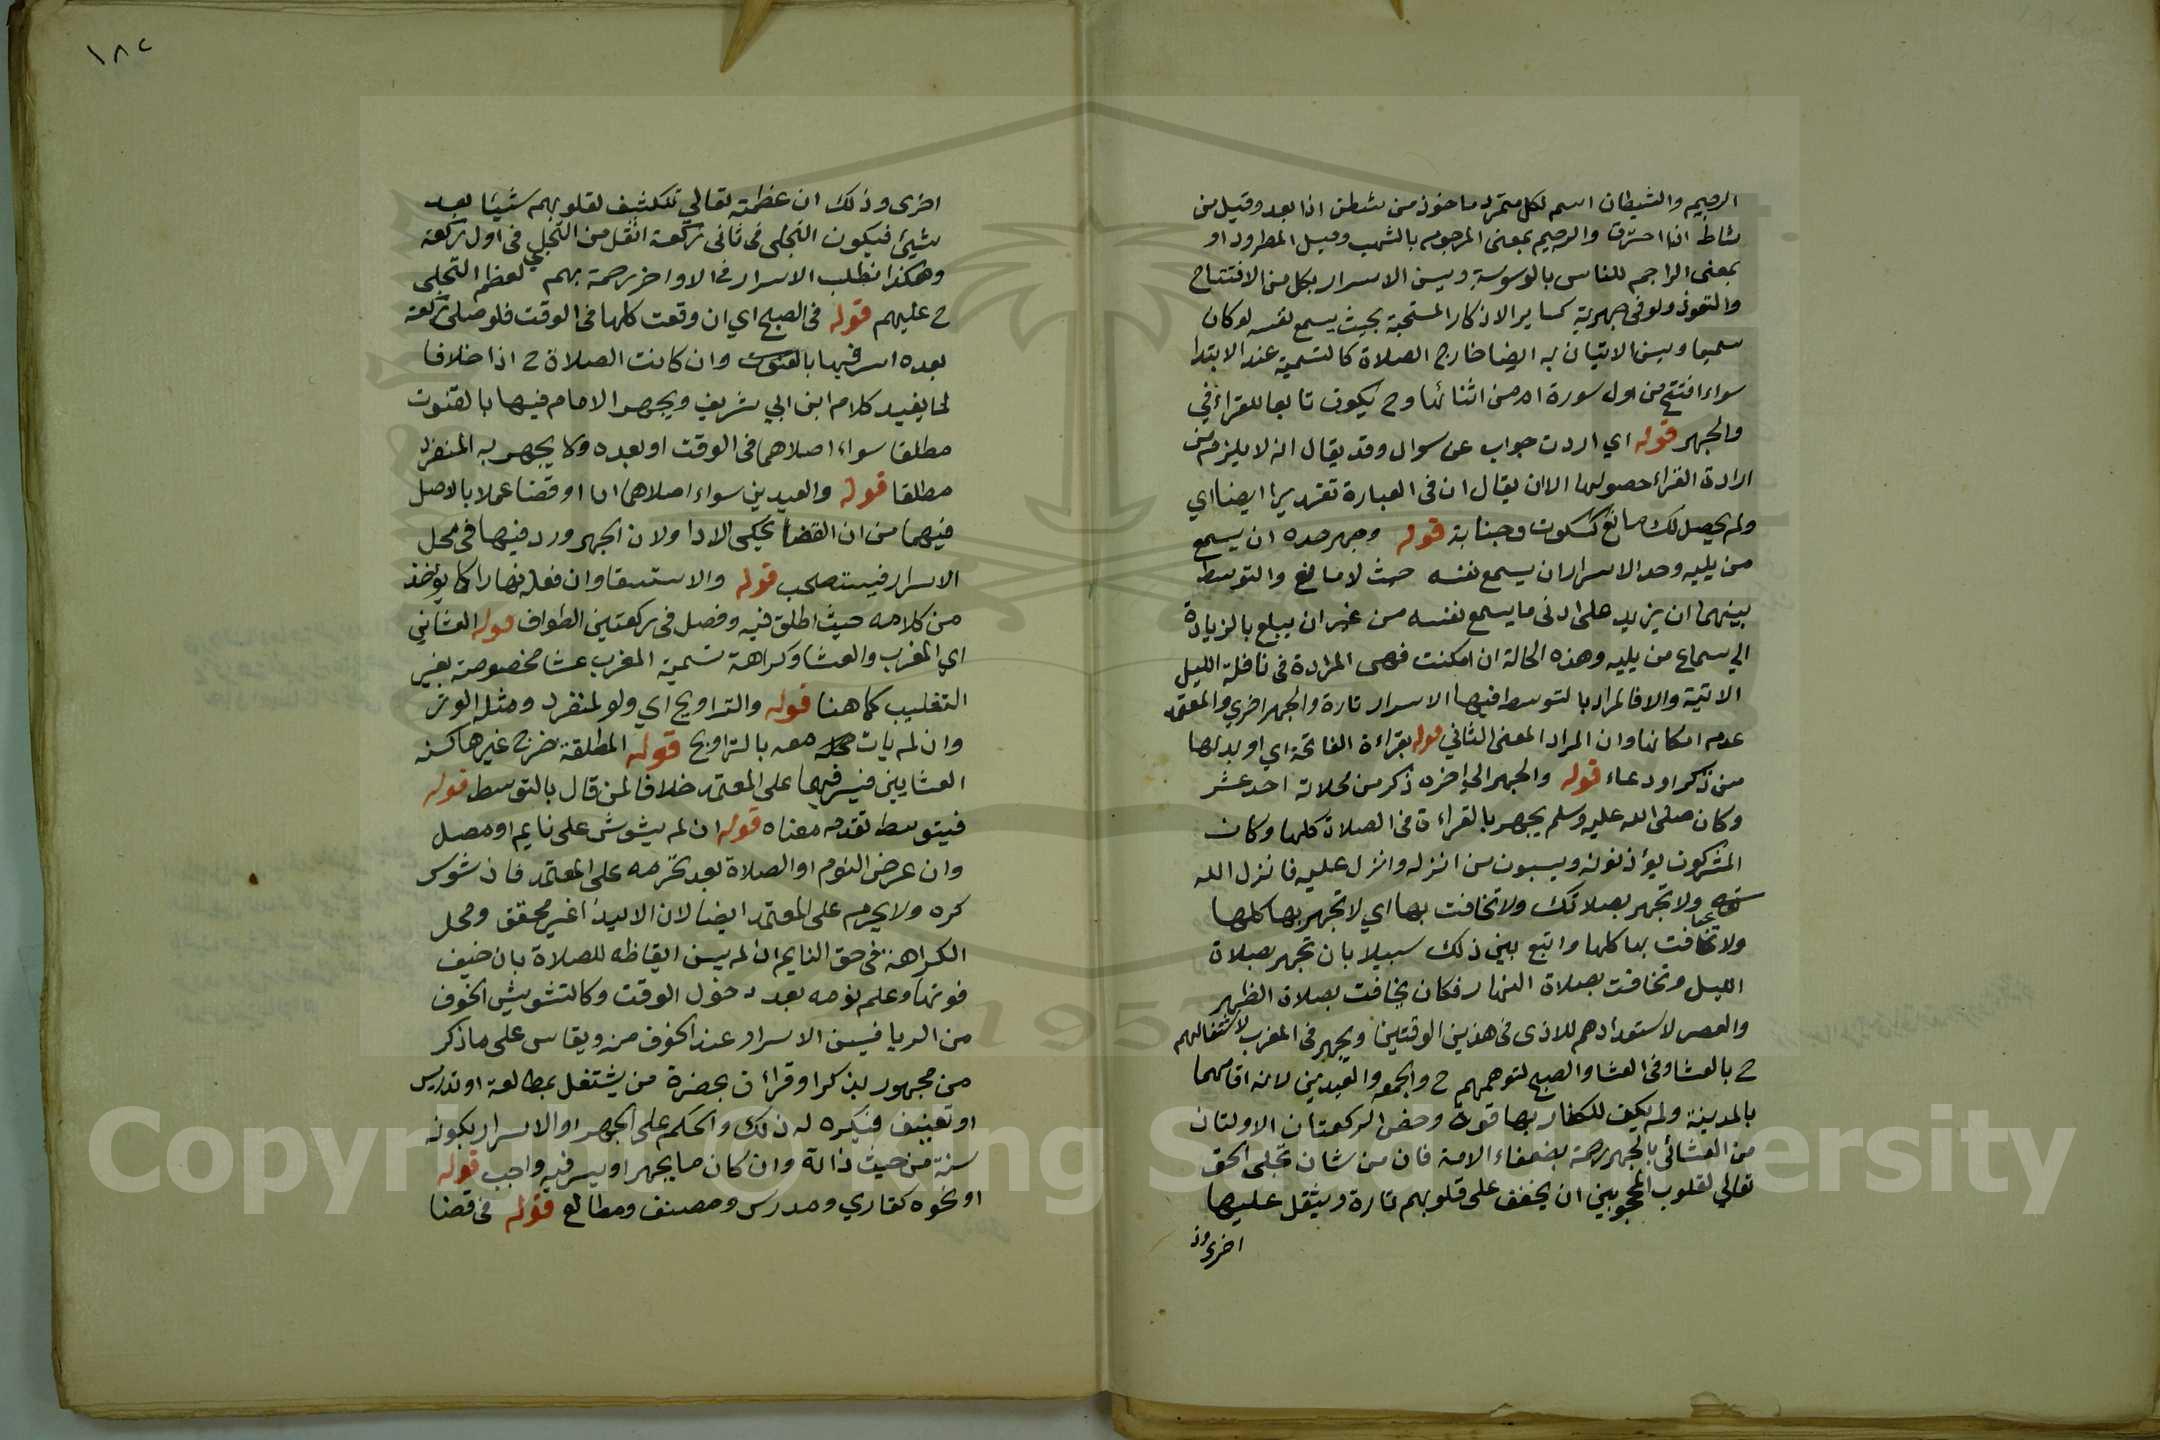 الرجيم والشيطان اسم لكل متمرد ماخوذ من شطن اذا بعد وقيل من
شاط اذا احترق والرجيم بمعنى المرجوم بالشهب وقيل المطرود او
بمعنى الراجم للناس بالوسوسة ويسن الاسرار بكل من الافتتاح
والتعوذ ولو في جهرية كساير الاذكار المستحبة بحيث يسمع نفسه لو كان
سميعا ويسن الاتيان به ايضا خارج الصلاة كالتسمية عند الابتدا
سواء افتتح من اول سورة ام من اثنائها وح يكون تابعا للقراءة في
والجهر قوله اي اردت جواب عن سوال وقد يقال انه لا يلزم من
ارادة القراءة حصولها الا ان يقال ان في العبارة تقديرا ايضا اي
ولم يحصل لك مانع كسكوت وجنابة قوله وجهر حده ان يسمع
من يليه وحد الاسرار ان يسمع نفسه حيث لا مانع والتوسط
بينهما ان يزيد على ادنى ما يسمع نفسه من غير ان يبلغ بالزيادة
الي سماع من يليه وهذه الحالة ان امكنت فهى المرادة في نافلة الليل
الاتية والا فالمراد بالتوسط فيها الاسرار تارة والجهر اخري والمعتمد
عدم امكانها وان المراد المعنى الثاني قوله بقراءة الفاتحة اي او بدلها
من ذكر او دعاء قوله والجهر الي اخره ذكر من محلاته احد عشر
وكان صلى الله عليه وسلم يجهر بالقراءة في الصلاة كلها وكان
المشركون يؤذونه ويسبون من انزله وانزل عليه فانزل الله
ولا تجهر بصلاتك ولا تخافت بها اي لا تجهر بها كلها
ولا تخافت بها كلها وابتغ بين ذلك سبيلا بان تجهر بصلاة
الليل وتخافت بصلاة النهار فكان يخافت بصلاة الظهر
والعصر لاستعدادهم للاذى في هذين الوقتين ويجهر في المغرب لاشتغالهم
ح بالعشا وفي العشا والصبح لنومهم ح والجمعه والعيدين لانه اقامهما
بالمدينة ولم يكن للكفار بها قوة وخص الركعتان الاولتان
من العشائي بالجهر رحمة بضعفاء الامة فان من شان تجلى الحق
تعالي لقلوب المحجوبين ان يخفف على قلوبهم تارة ويثقل عليها
اخرى وذ
١٨٢
اخرى وذلك ان عظمته تعالي تنكشف لقلوبهم شيئا بعد
شيئ فيكون التجلي في ثاني ركعة اثقل من التجلي في اول ركعة
وهكذا فطلب الاسرار في الاواخر رحمة بهم لعظم التجلي
ح عليهم قوله في الصبح اي ان وقعت كلها في الوقت فلو صلى ركعة
بعده اسر فيها بالقنوت وان كانت الصلاة ح اذا خلافا
لما يفيد كلام ابن ابي شريف ويجهر الامام فيها بالقنوت
مطلقا سواء اصلاهما في الوقت او بعده ولا يجهر به المنفرد
مطلقا قوله والعيدين سواء اصلاهما ادا او قضا عملا بالاصل
فيهما من ان القضا يحكى الادا ولان الجهر ورد فيها في محل
الاسرار فيستصحب قوله والاستسقا وان فعله نهارا كما يؤخذ
من كلامه حيث اطلق فيه وفصل في ركعتين الطواف قوله العشائي
اي المغرب والعشا وكراهة تسمية المغرب عشا مخصوصة بغير
التغليب كما هنا قوله والتراويح اي ولو لمنفرد ومثله الوتر
وان لم يات معه بالتراويح قوله المطلقة خرج غيرها كسنة
العشايين فيسر فيها على المعتمد خلافا لمن قال بالتوسط قوله
فيتوسط تقدم معناه قوله ان لم يشوش على نايم او مصل
وان عرض النوم او الصلاة بعد تحرمه على المعتمد فان شوس
كره ولا يحرم على المعتمد ايضا لان الايذا غير محقق ومحل
الكراهة في حق النايم ان لم يسن ايقاظه للصلاة بان خيف
فوتها وعلم نومه بعد دخول الوقت وكالتشويش الخوف
من الريا فيسن الاسرار عند الخوف منه ويقاس على ما ذكر
من مجهور بذكر او قراءة بحضرة من يشتغل بمطالعة او تدريس
او تصنيف فيكره له ذلك والحكم على الجهر او الاسرار بكونه
سنة من حيث ذاته وان كان ما يجهر او يسر فيه واجب قوله
او نحوه كقاري ومدرس ومصنف ومطالع قوله في قضا
Copyright © King Saud University
1957